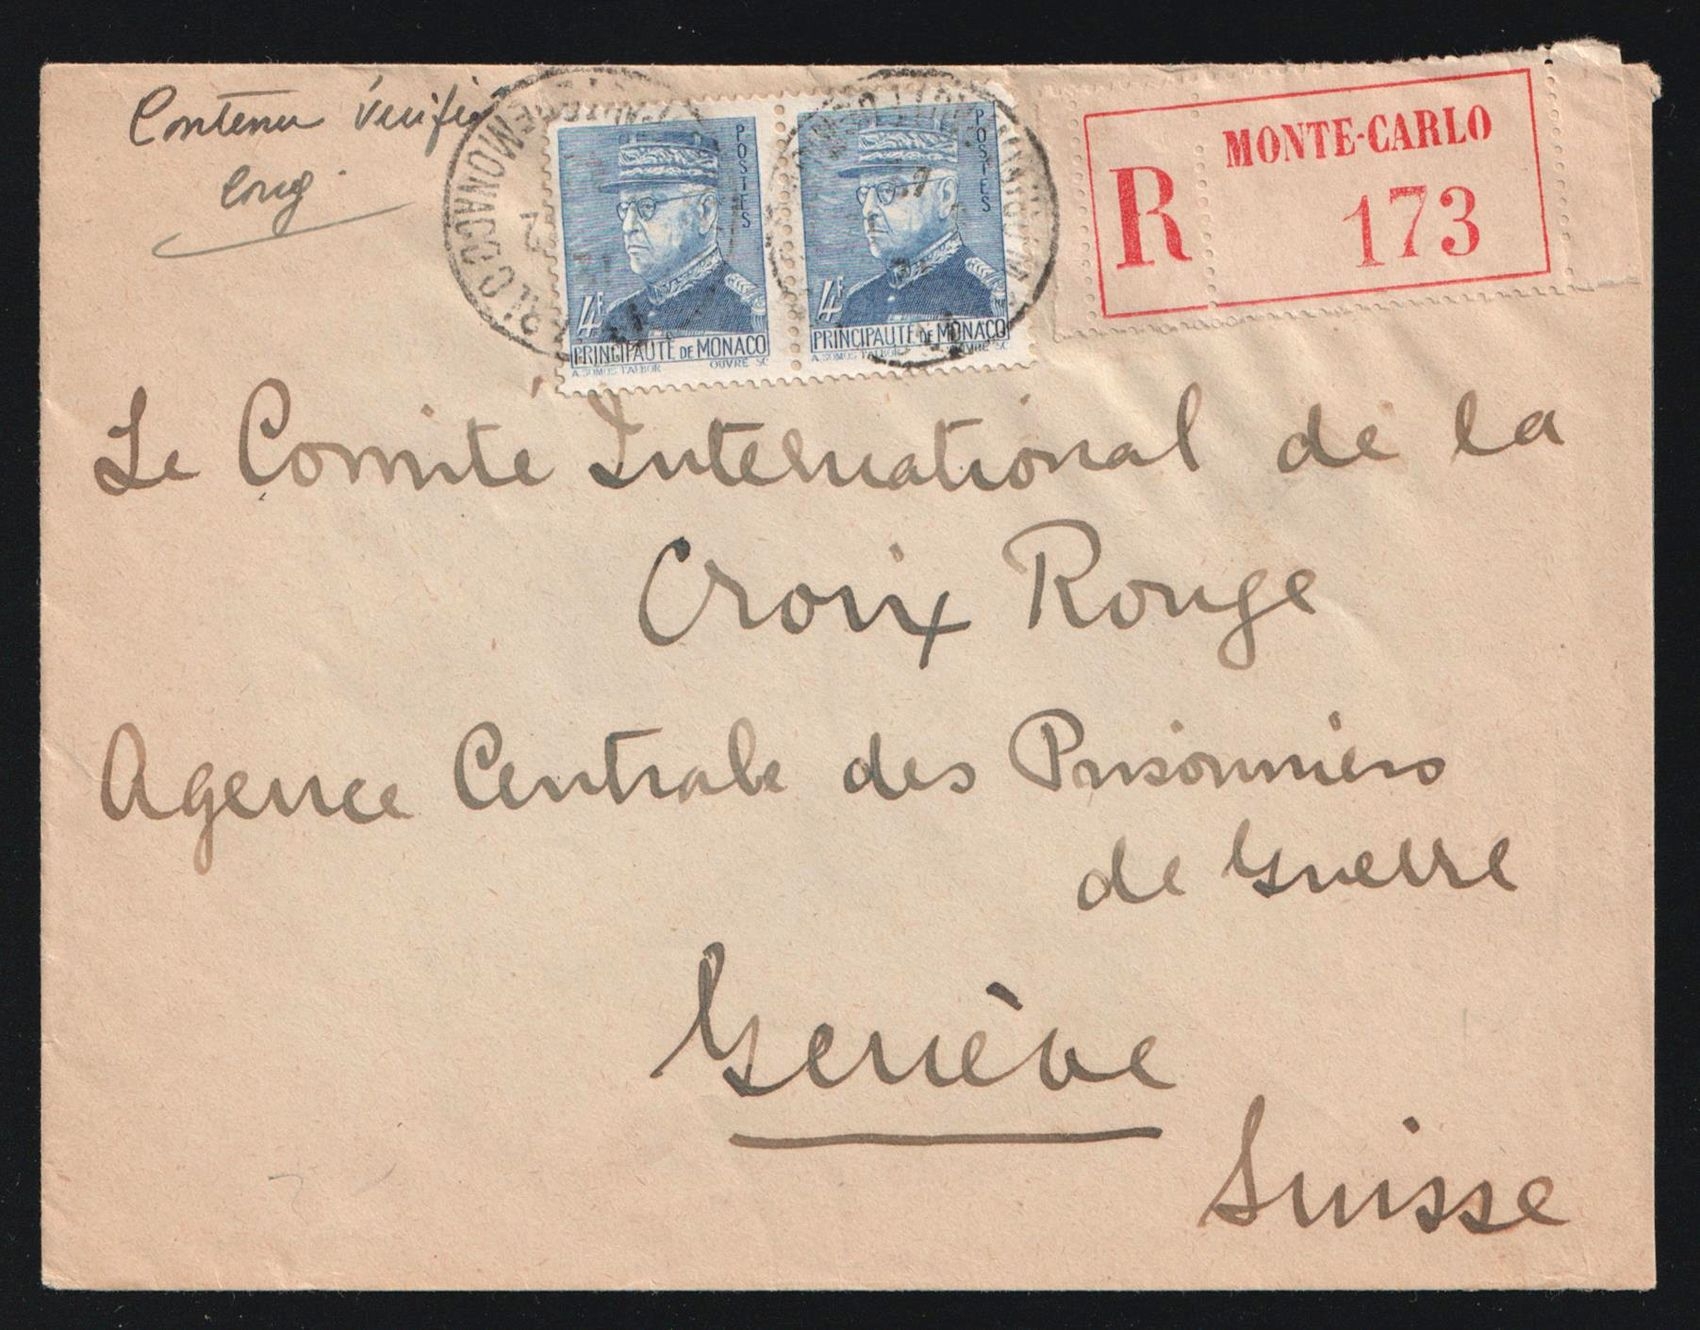 Contenu vérifié
POSTES
4F
PRINCIPAUTÉ DE MONACO
A. SOMOS TALBOR OUVRÉ SC
POSTES
4F
PRINCIPAUTÉ DE MONACO
A. SOMOS TALBOR OUVRÉ SC
MONACO
R
MONTE-CARLO
173
Le Comité International de la
Croix Rouge
Agence Centrale des Prisonniers
de Guerre
Genève
Suisse